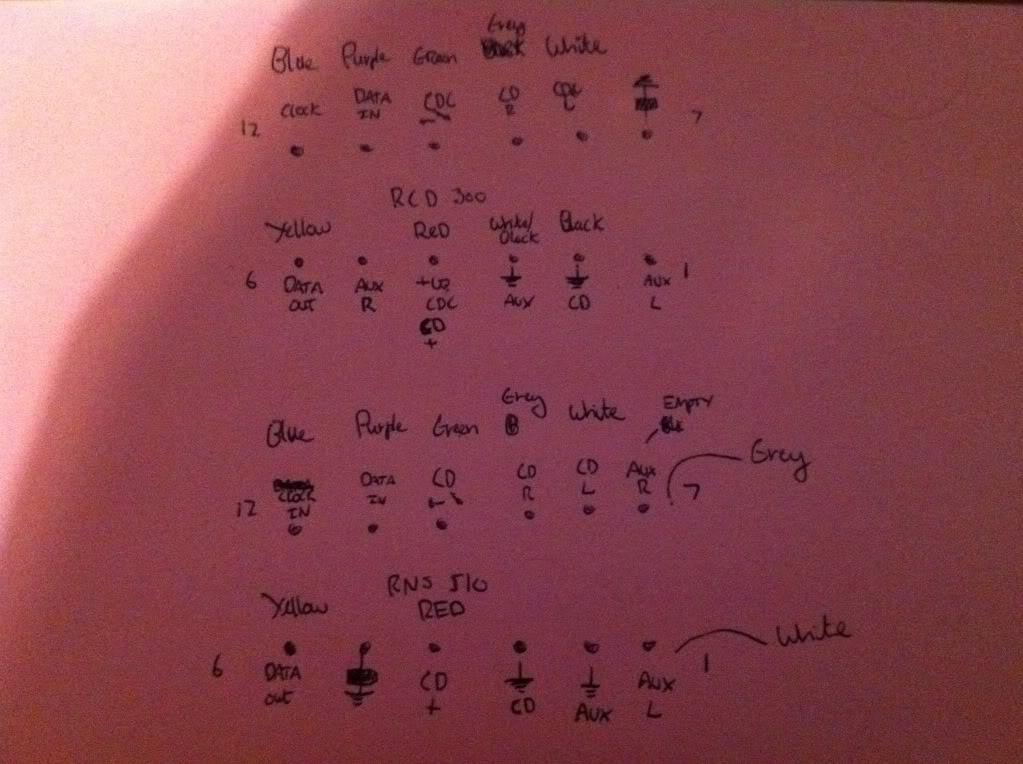 Grey
Blue Purple Green White
Clock DATA CDC CD CDC
IN R L
12 7
RCD 300
Yellow RED White/ Black
Black
6 1
DATA AUX +VE AUX
OUT R CDC AUX CD L
CD
+
Grey EMPTY
Blue Purple Green White
Grey
CLOCK DATA CD CD CD AUX
IN IN R L R
12 7
RNS 510
Yellow RED
White
6 1
DATA CD AUX
out + CD AUX L